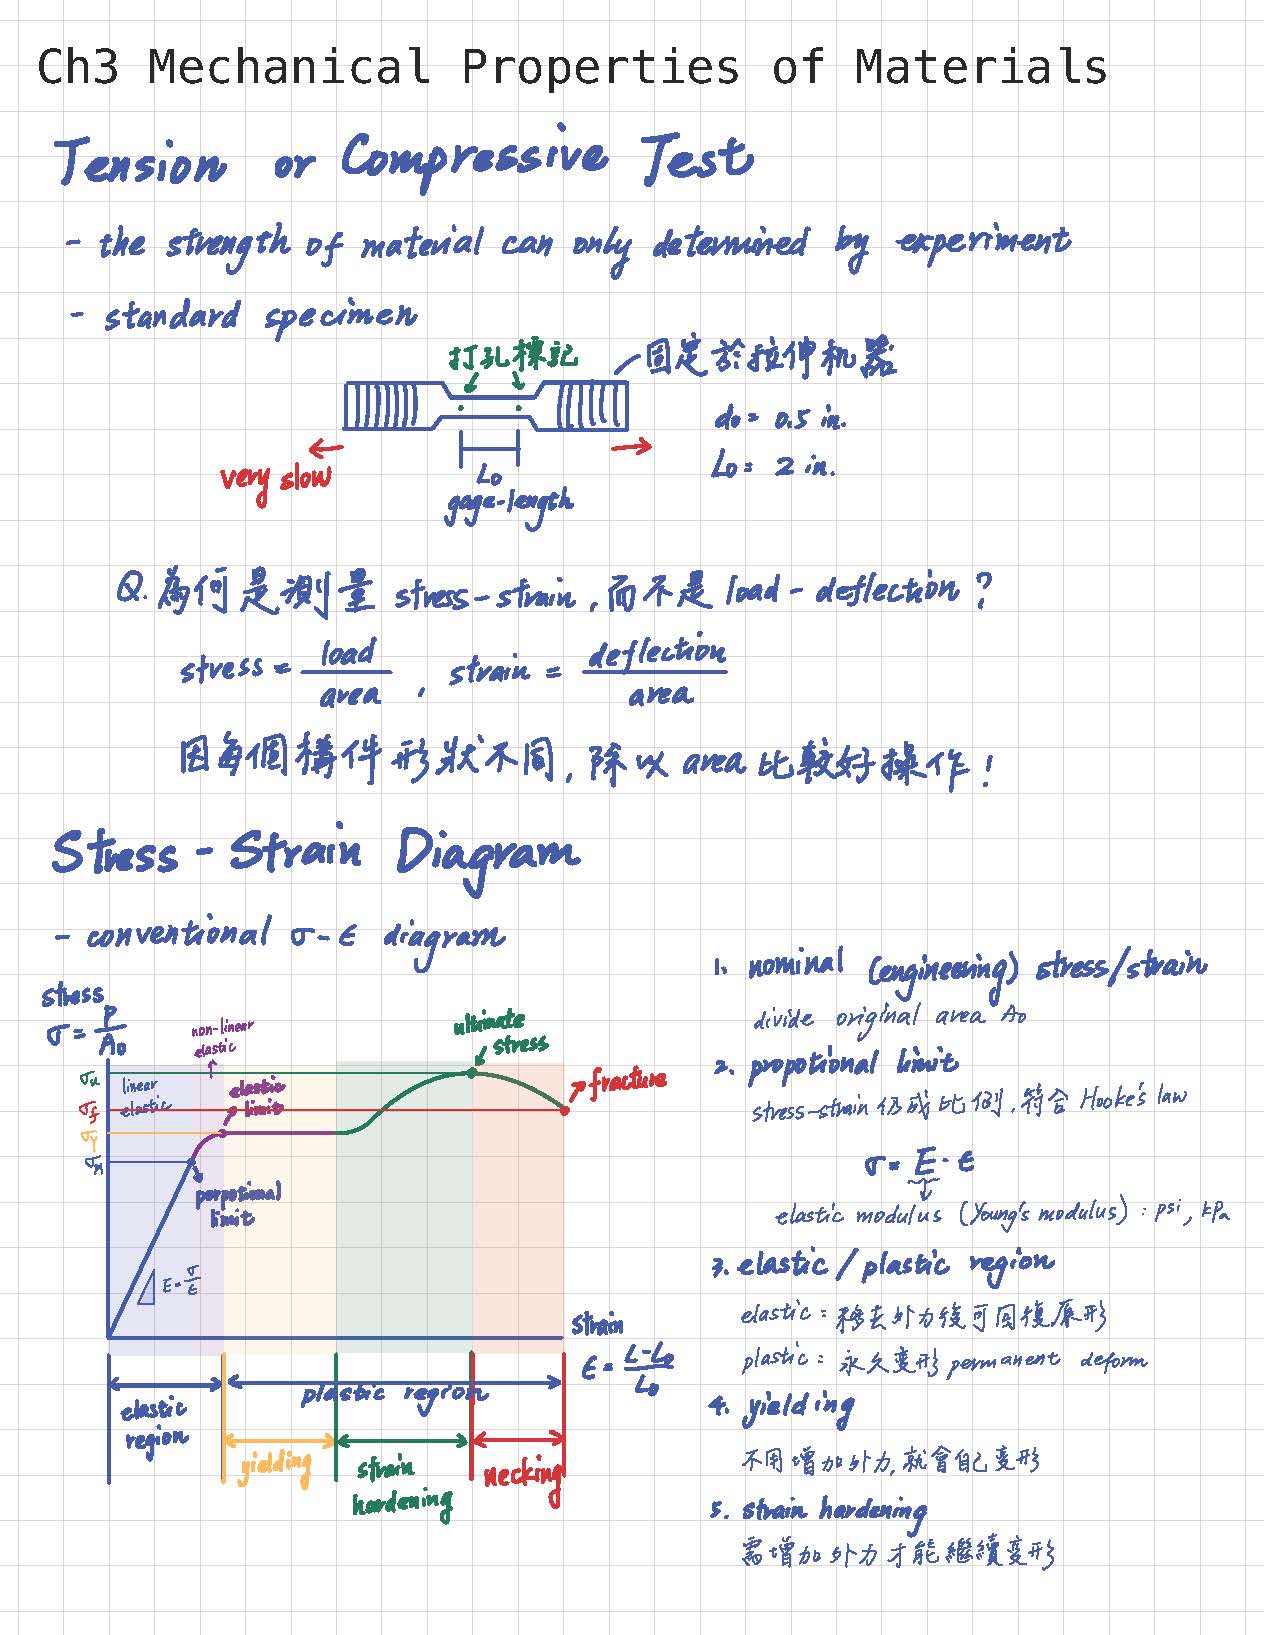 Ch3 Mechanical Properties of Materials
Tension or Compressive Test
- the strength of material can only determined by experiment
- standard specimen
打孔標記
固定於拉伸机器
d₀ = 0.5 in.
L₀ = 2 in.
very slow
L₀
gage-length
Q. 為何是測量 stress-strain, 而不是 load-deflection?
stress = load / area , strain = deflection / area
因每個構件形狀不同, 除以 area 比較好操作!
Stress - Strain Diagram
- conventional σ-ϵ diagram
stress
σ = P / A₀
non-linear
elastic
ultimate
stress
σu
linear
elastic
elastic
limit
fracture
σf
σY
porpotional
limit
E = σ/ϵ
strain
ϵ = L-L₀ / L₀
elastic
region
plastic region
yielding
strain
hardening
necking
1. nominal (engineering) stress/strain
divide original area A₀
2. propotional limit
stress-strain 仍成比例, 符合 Hooke's law
σ = E · ϵ
elastic modulus (Young's modulus) : psi, kPa
3. elastic / plastic region
elastic : 移去外力後可回復原形
plastic : 永久変形 permanent deform
4. yielding
不用增加外力, 就會自己变形
5. strain hardening
需增加外力才能繼續变形